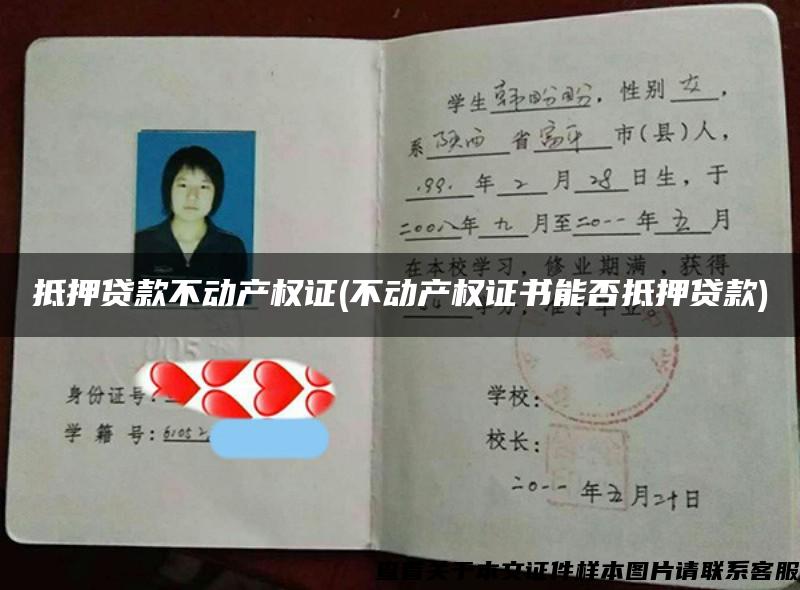 学生韩盼盼，性别女，
系陕西省富平市(县)人，
1991年2月28日生，于
二00八年九月至二0一一年五月
在本校学习，修业期满，获得
抵押贷款不动产权证(不动产权证书能否抵押贷款)
学分，准予毕业。
005
身份证号：
学籍号：61052
学校：
校长：
二0一一年五月二十日
查看关于本文证件样本图片请联系客服